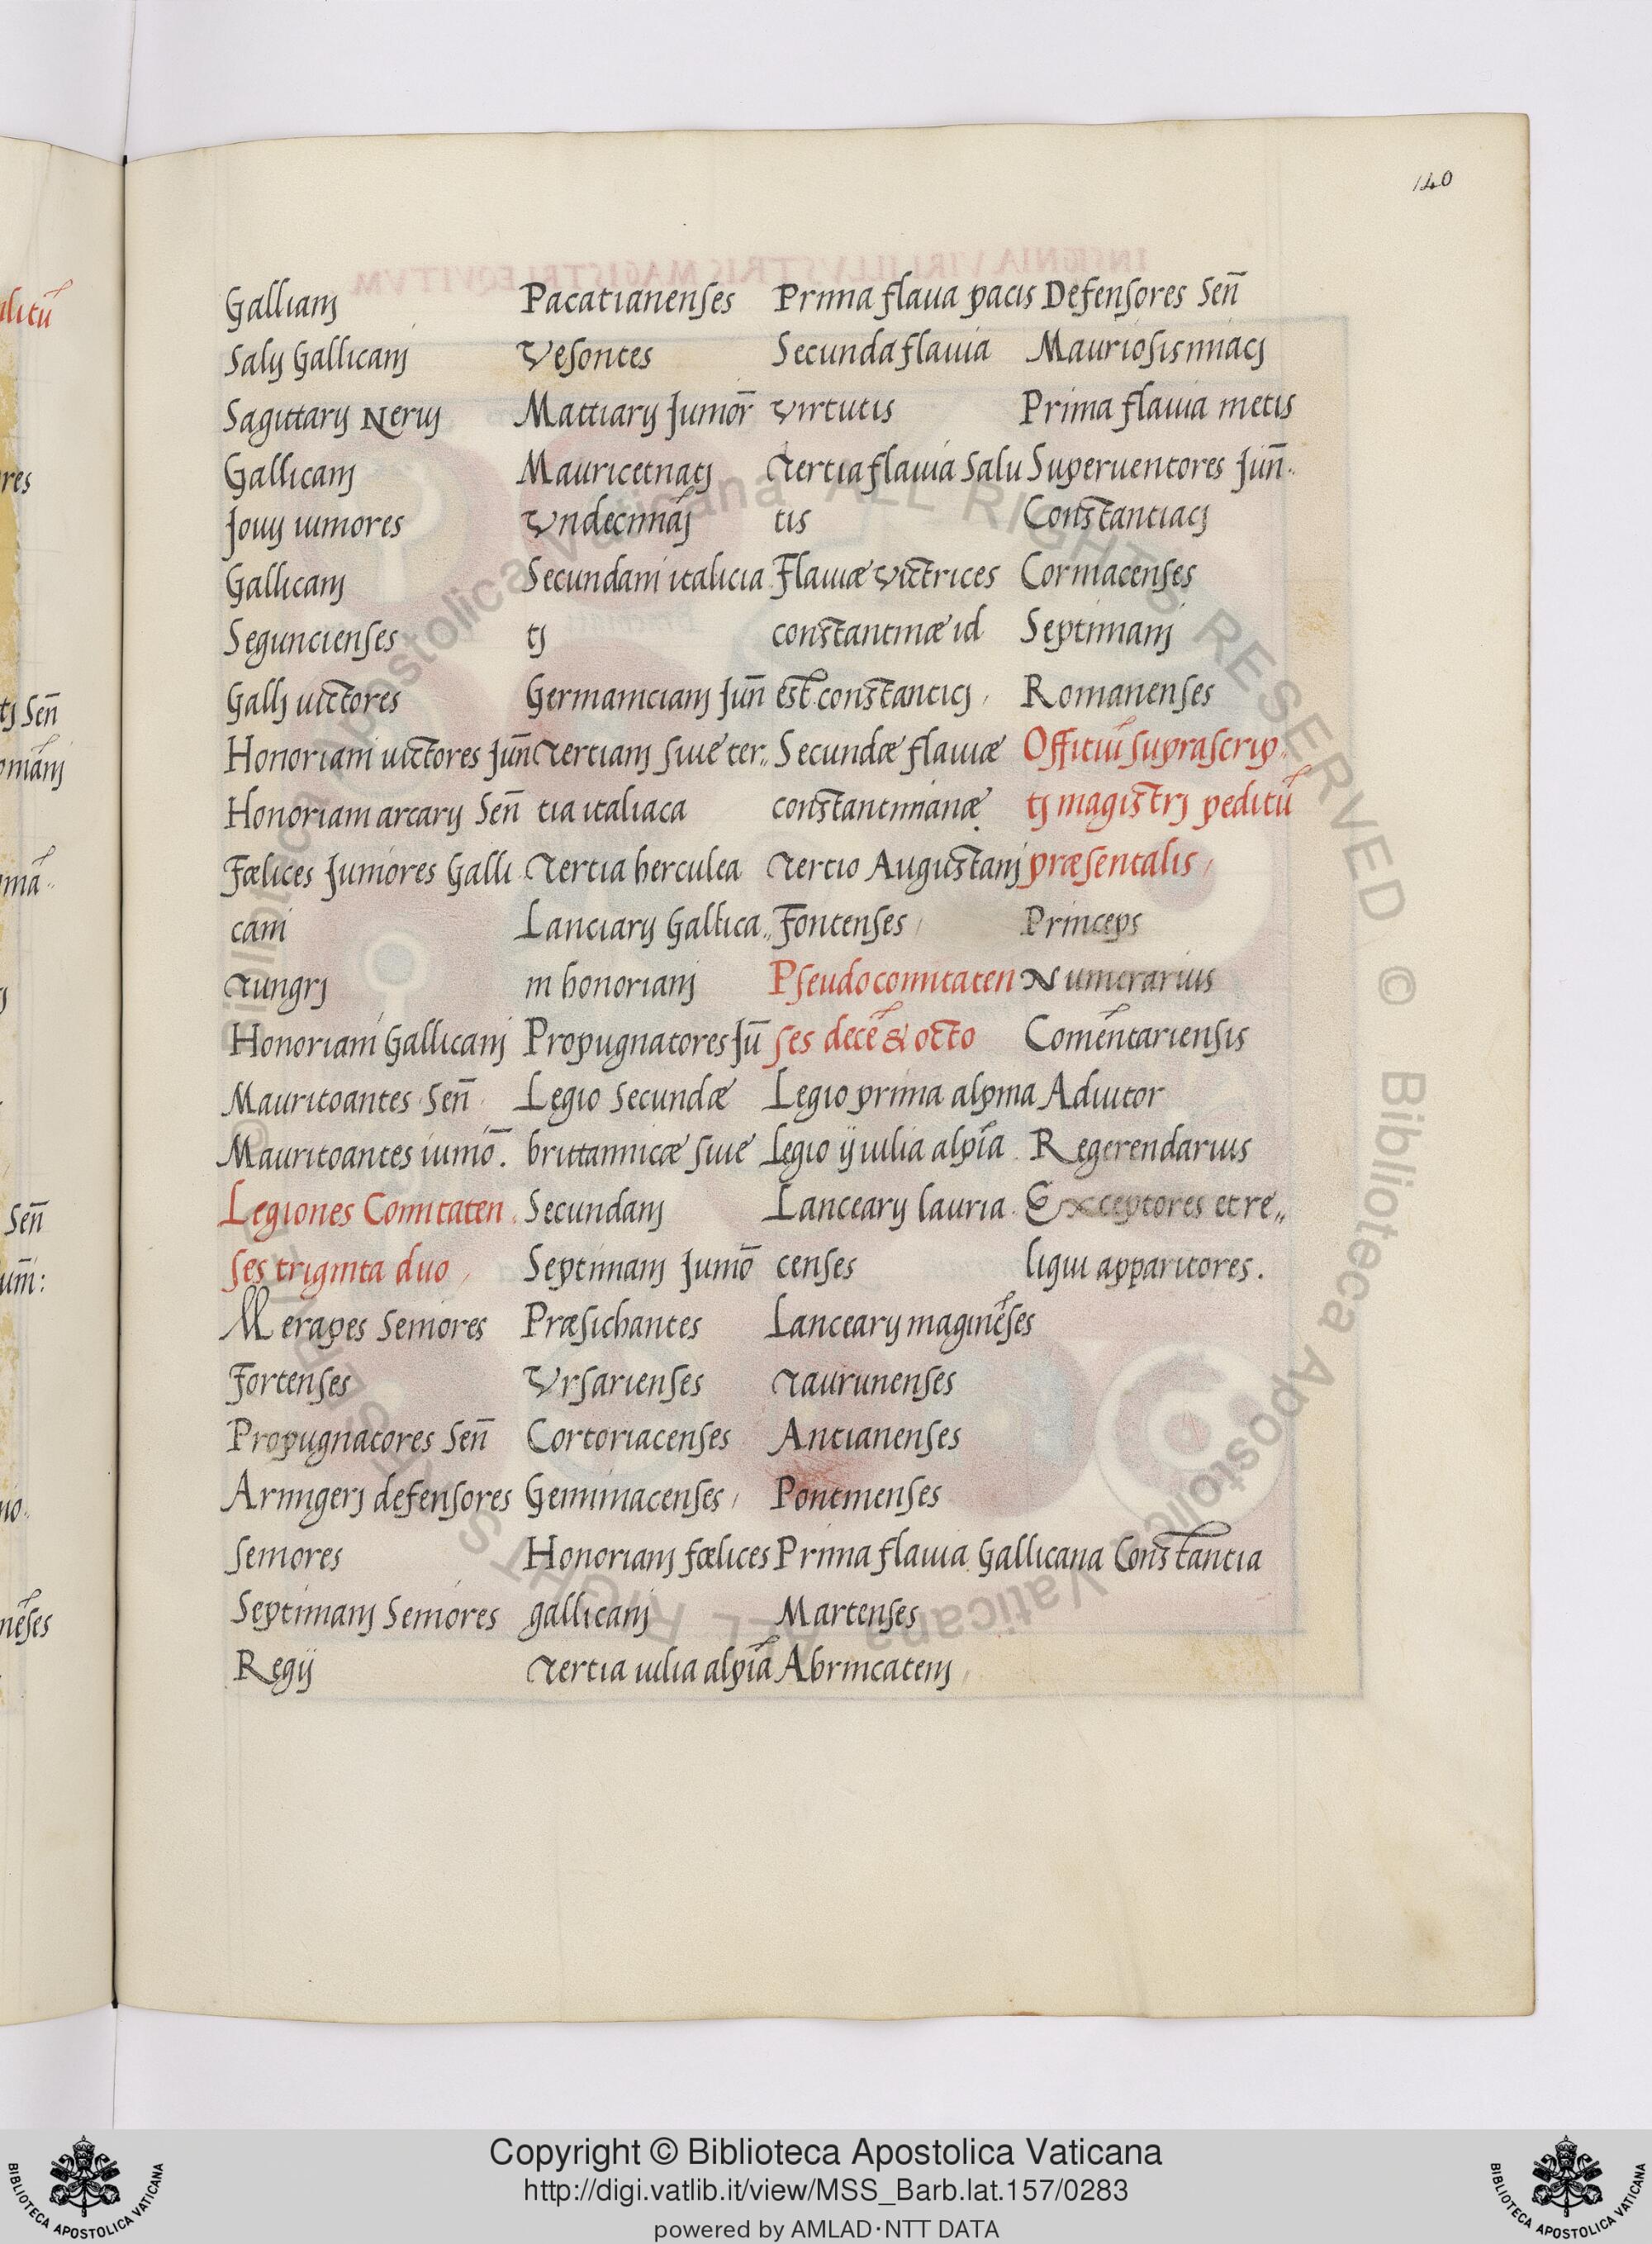 140
Galliani
Salij Gallicani
Sagittarij Neruij
Gallicani
Jouij iuniores
Gallicani
Seguncienses
Galli uictores
Honoriani uictores Jun̄
Honoriani arcarij Sen̄
Fœlices Juniores Galli
cani
Tungri
Honoriani Gallicani
Mauritoantes Sen̄
Mauritoantes iunio᷑.
Legiones Comitaten
ses triginta duo
Merapes Seniores
Fortenses
Propugnatores Sen̄
Armigeri defensores
Seniores
Septimani Seniores
Regij
Pacatianenses
Vesontes
Mattiarij Junior̄
Mauricetnati
Vndecimāi
Secundani italicia
ti
Germaniciani Jun̄
Tertiani siue ter„
tia italiaca
Tertia herculea
Lanciarij Gallica„
ni honoriani
Propugnatores Jū
Legio Secundæ
brittannicæ siue
Secundani
Septimani Junio᷑
Præsichantes
Vrsarienses
Cortoriacenses
Geminiacenses
Honoriani fœlices
gallicani
Tertia iulia alpīa
Prima flaua pacis
Secunda flauia
Virtutis
Tertia flauia Salu
tis
Flauiæ Victrices
constantinæ id
est constantici
Secundæ flauiæ
constantinianæ
Tertio Augustani
Fontenses
Pseudocomitaten
ses decē & octo
Legio prima alpina
Legio ij iulia alpīa
Lancearij lauria
censes
Lancearij maginēses
Taurunenses
Antianenses
Pontinenses
Prima flauia Gallicana Constantia
Martenses
Abrincateni
Defensores Sen̄
Mauriosismiaci
Prima flauia metis
Superuentores Jun̄
Constantiaci
Cormacenses
Septimani
Romanenses
Officiū suprascrip
ti magistri peditū
præsentalis
Princeps
Numerarius
Comentariensis
Adiutor
Regerendarius
Exceptores et re„
liqui apparitores.
Copyright © Biblioteca Apostolica Vaticana
http://digi.vatlib.it/view/MSS_Barb.lat.157/0283
powered by AMLAD·NTT DATA